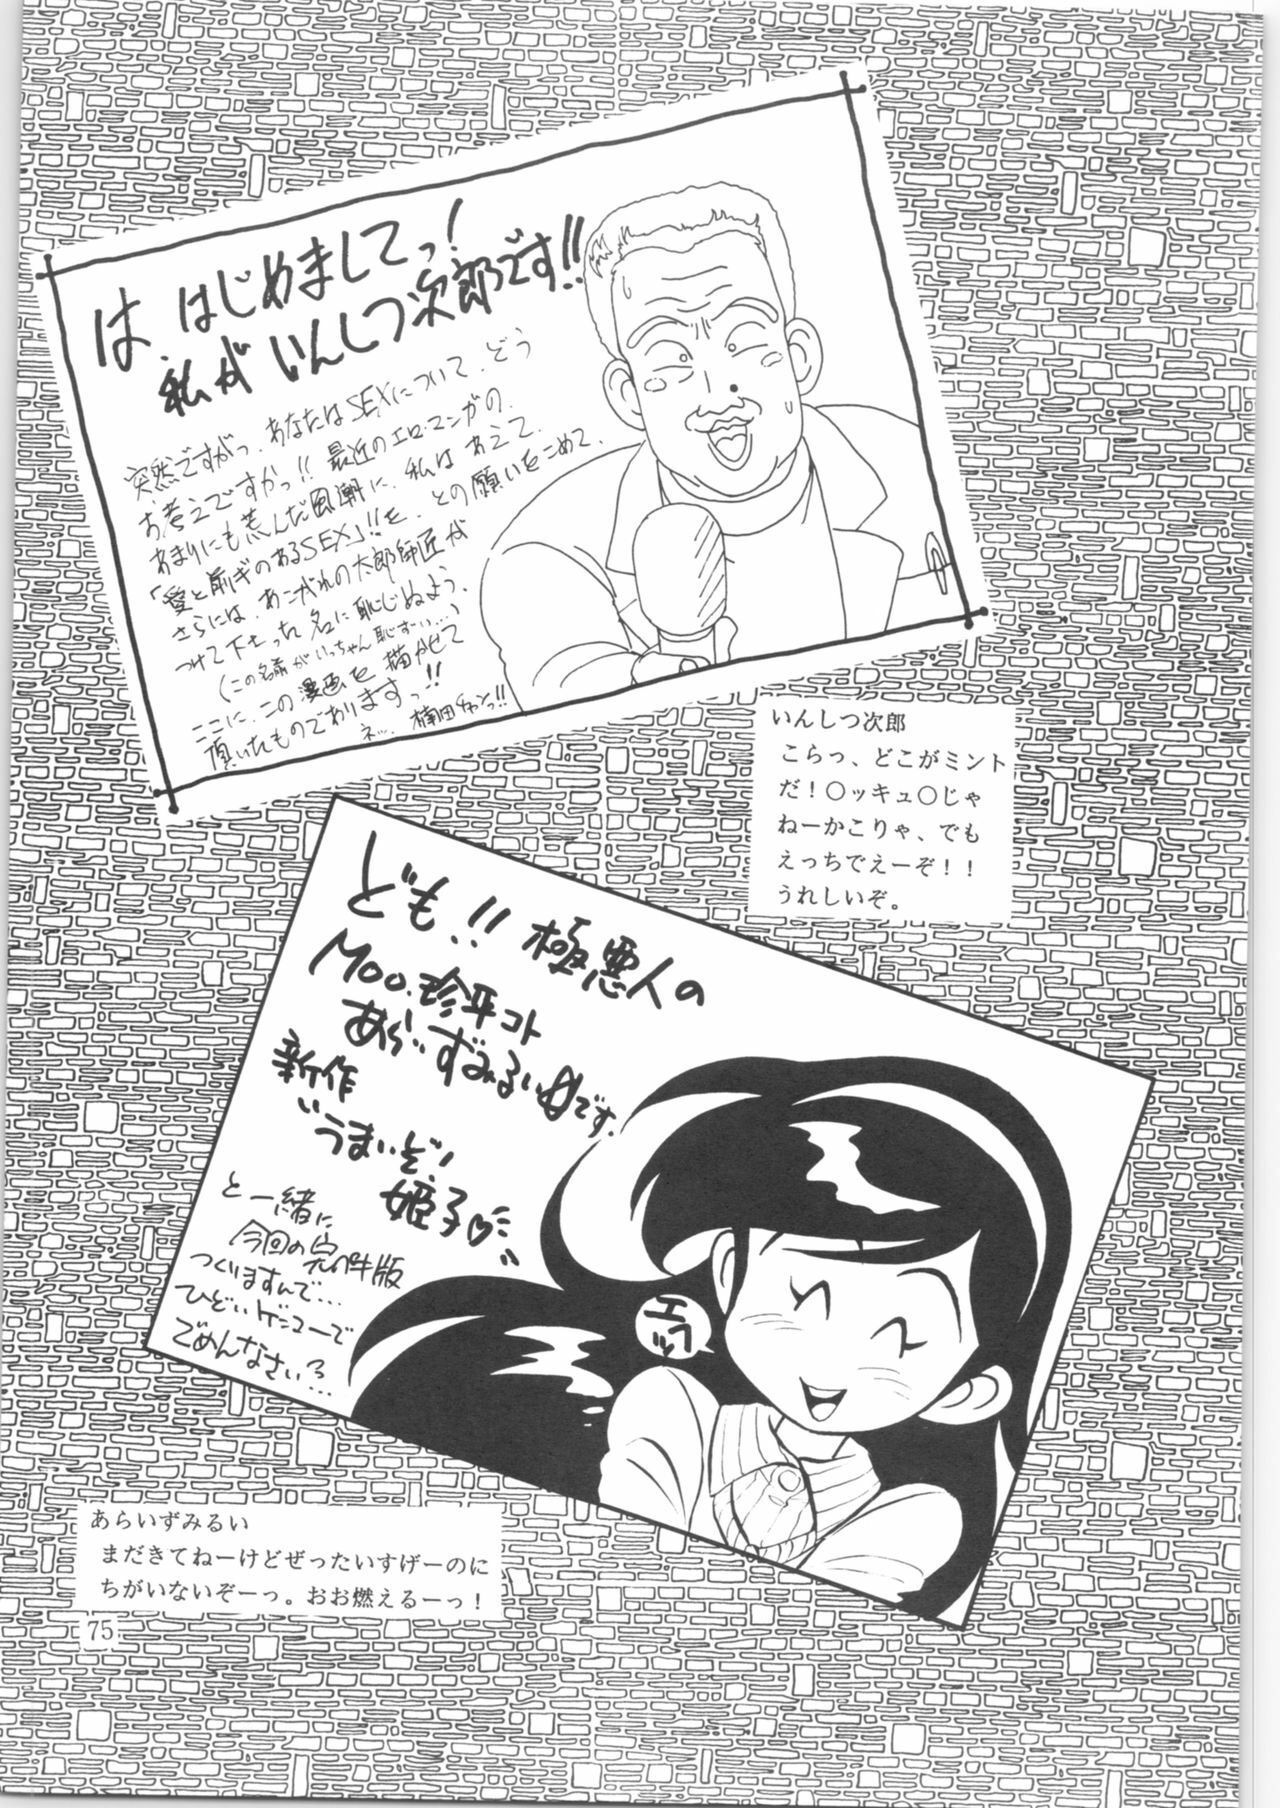 は、はじめましてっ！
私がいんしつ次郎です!!
突然ですがっ、あなたはSEXについて、どう
お考えですかっ!! 最近のエロ・マンガの、
あまりにも荒んだ風潮に、私はあえて、
「愛と前ぎのあるSEX」!!を、との願いをこめて、
さらには、あこがれの太郎師匠が
つけて下さった名に恥じぬよう、
（この名前がいっちゃん恥ずい…）
ここに、この漫画を描かせて
頂いたものでありますっ!!
いんしつ次郎
こらっ、どこがミント
だ！〇ッキュ〇じゃ
ねーかこりゃ、でも
えっちでえーぞ！！
うれしいぞ。
ども!! 極悪人の
Moo.珍平コト
あらいずみるいです.
新作
うまいぞ!
姫子♡
と一緒に
今回の完ペキ版
つくりますんで…
ひどいゲンコーで
ごめんなさいっ…
エフッ
あらいずみるい
まだきてねーけどぜったいすげーのに
ちがいないぞーっ。おお燃えるーっ！
75